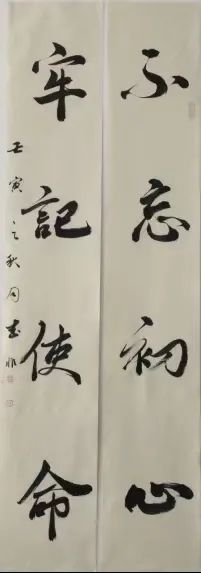 不忘初心
牢記使命
壬寅之秋月